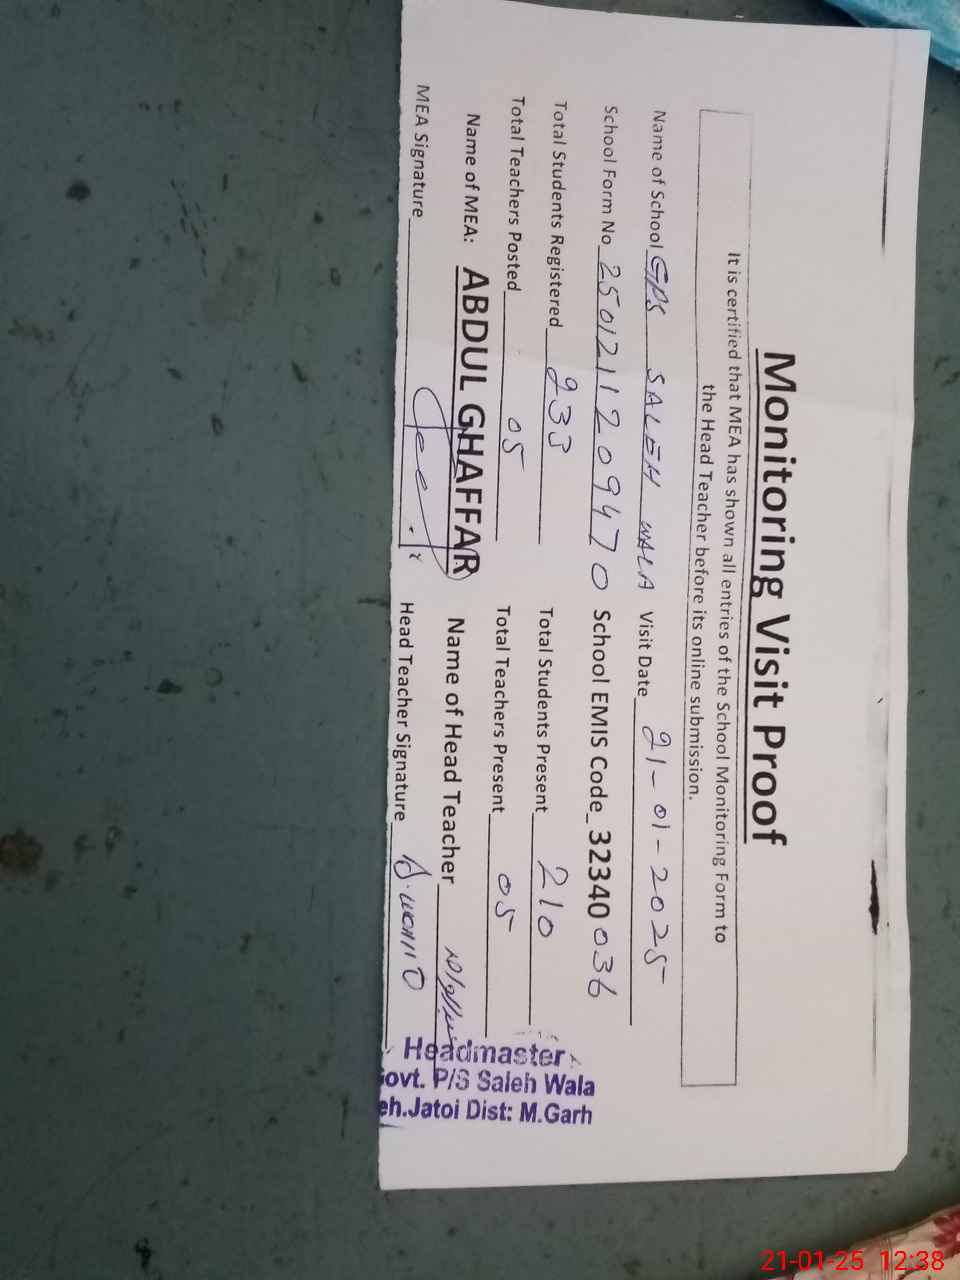 Monitoring Visit Proof
It is certified that MEA has shown all entries of the School Monitoring Form to
the Head Teacher before its online submission.
Name of School GPS SALEH WALA Visit Date 21-01-2025
School Form No 2501211209470 School EMIS Code 32340036
Total Students Registered 233 Total Students Present 210
Total Teachers Posted 05 Total Teachers Present 05
Name of MEA: ABDUL GHAFFAR Name of Head Teacher
MEA Signature Head Teacher Signature
Headmaster
ovt. P/S Saleh Wala
eh.Jatoi Dist: M.Garh
21-01-25 12:38